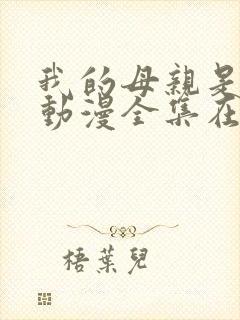 我的母親是
動漫全集在
梧葉兒